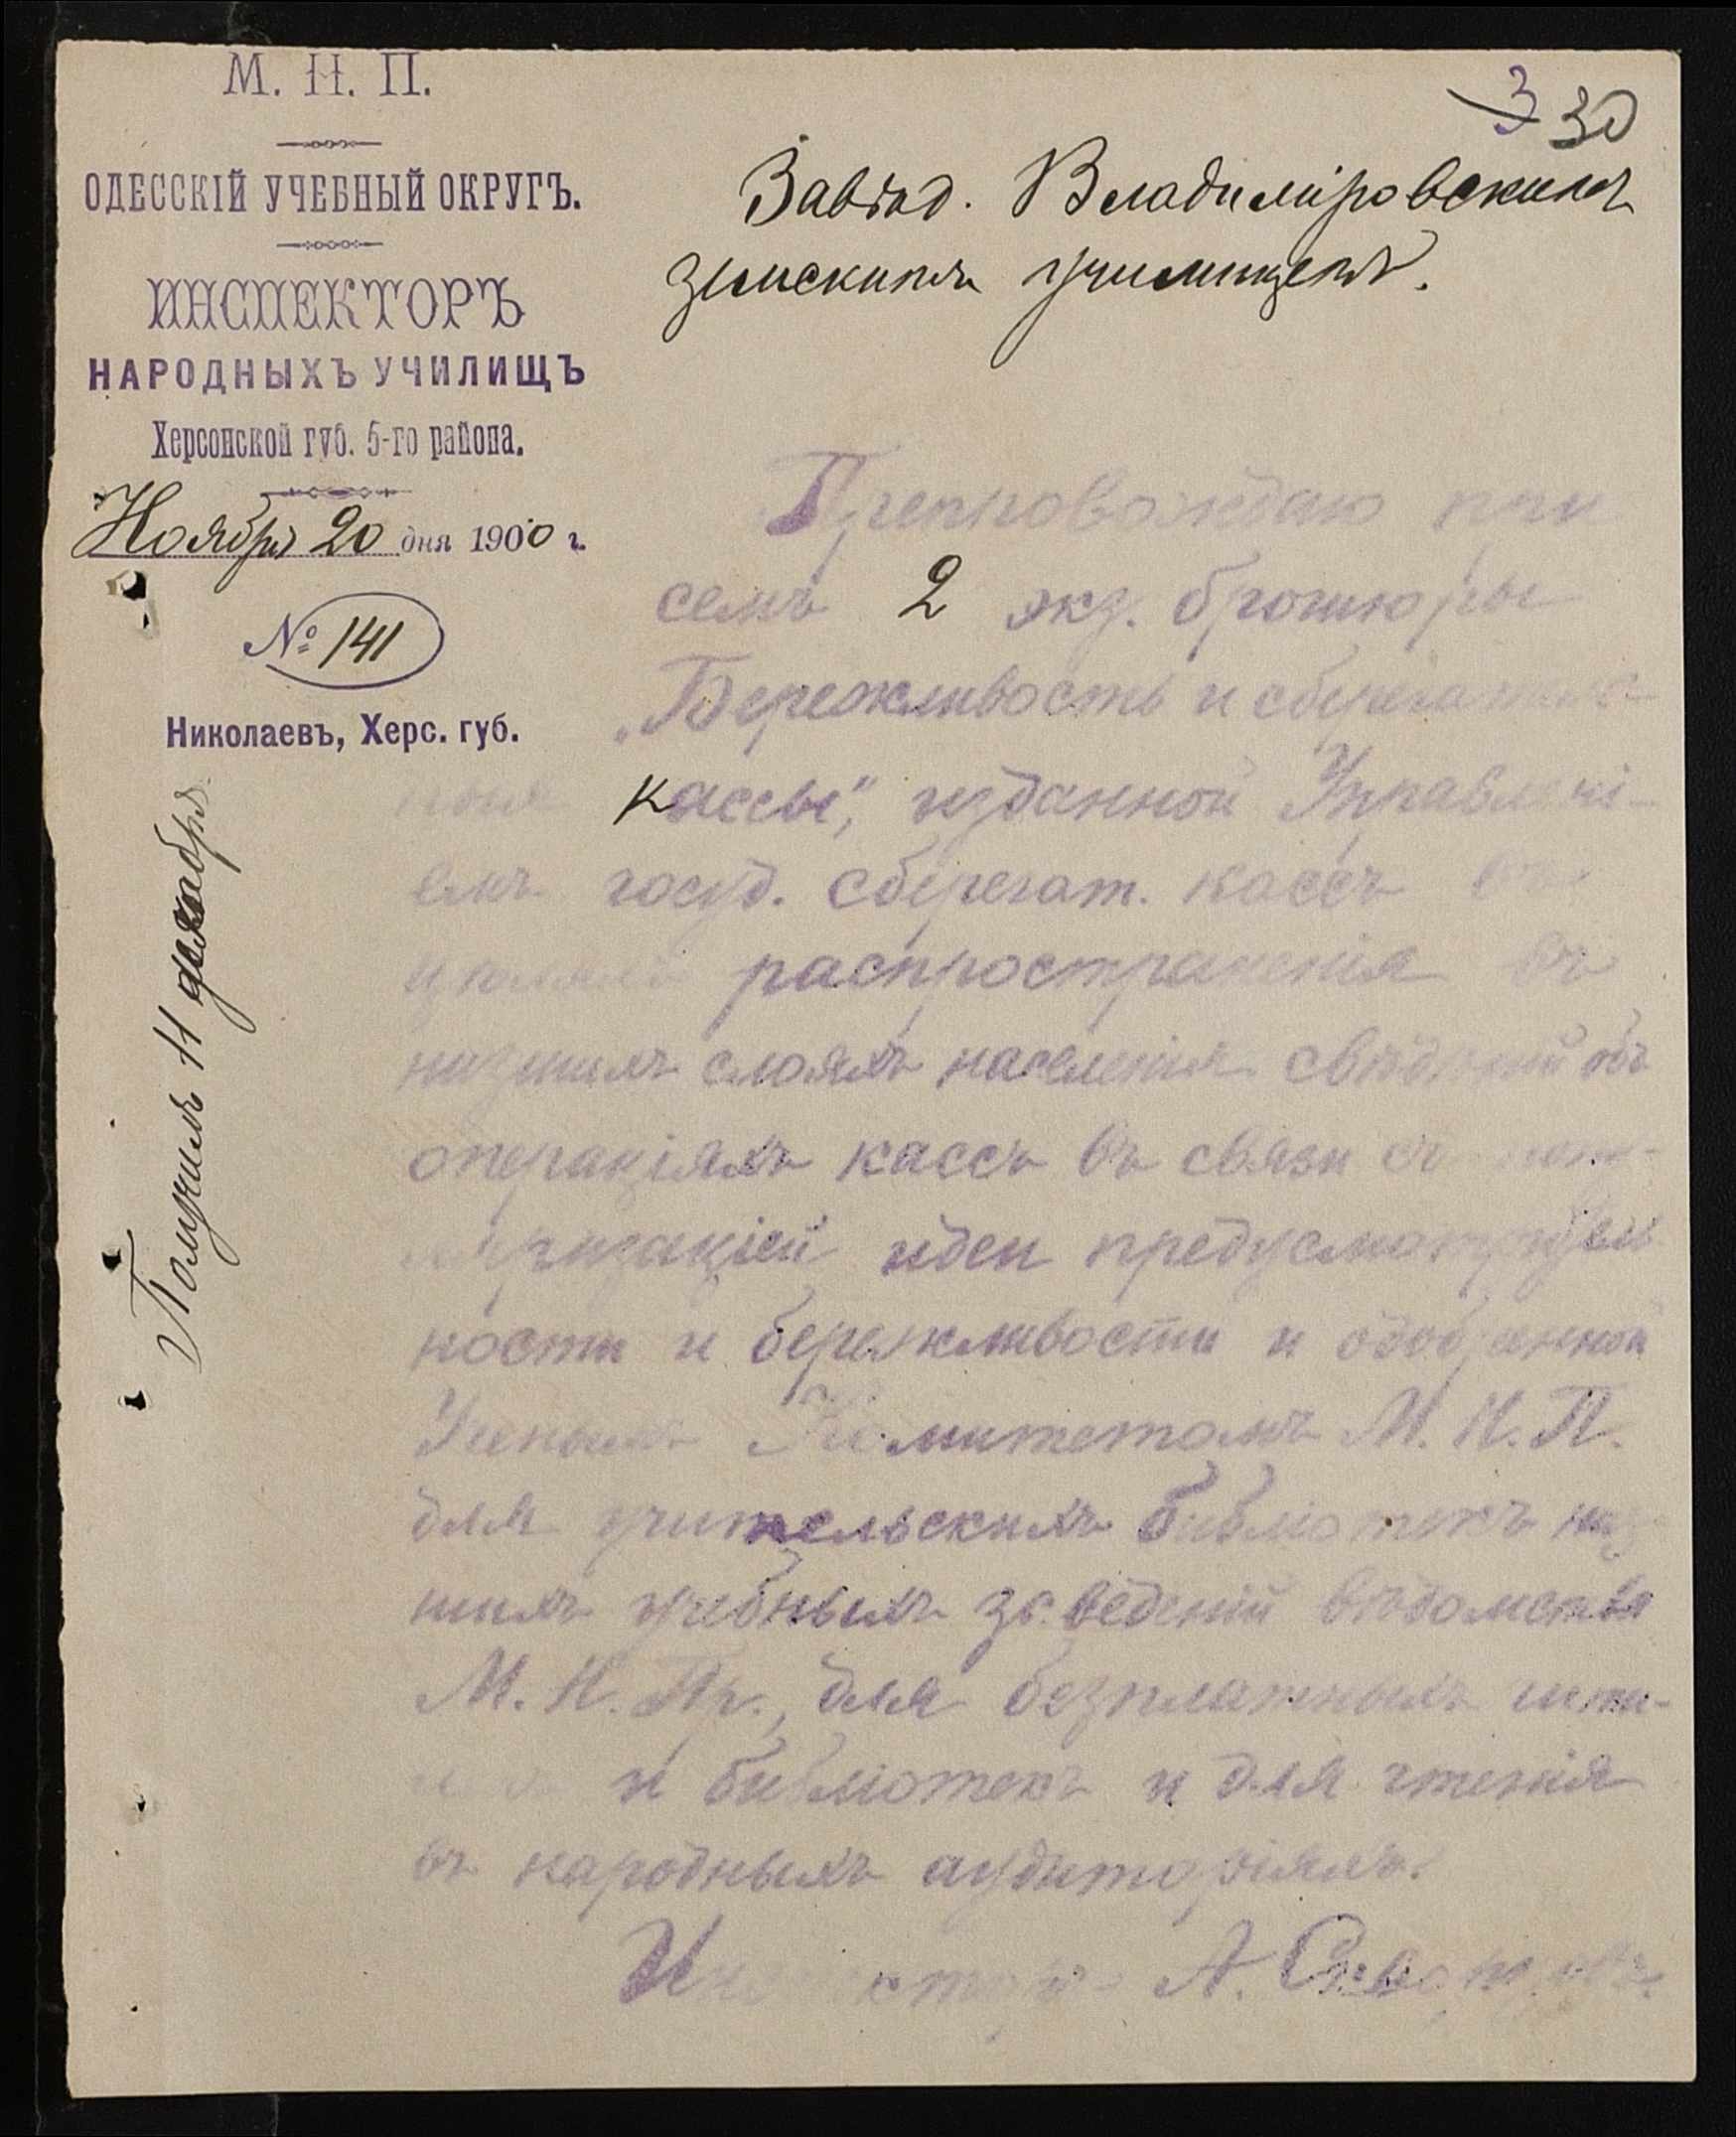 М. Н. П.
ОДЕССКІЙ УЧЕБНЫЙ ОКРУГЪ.
ИНСПЕКТОРЪ
НАРОДНЫХЪ УЧИЛИЩЪ
Херсонской губ. 5-го района.
Ноября 20 дня 1900 г.
№ 141
Николаевъ, Херс. губ.
Получилъ 11 декабря
3 30
Завѣд. Владиміровскимъ
земскимъ училищемъ.
Препровождаю при
семъ 2 экз. брошюры
„Бережливость и сберегатель-
ныя кассы", изданной Управлені-
емъ госуд. сберегат. кассъ въ
цѣляхъ распространенія въ
низшихъ слояхъ населенія свѣдѣній объ
операціяхъ кассъ въ связи съ попу-
ляризаціей идеи предусмотритель
ности и бережливости и одобренной
Ученымъ Комитетомъ М. Н. П.
для учительскихъ библіотекъ низ
шихъ учебныхъ заведеній вѣдомства
М. Н. Пр., для безплатныхъ чита-
и библіотекъ и для чтенія
въ народныхъ аудиторіяхъ.
Инспекторъ А.